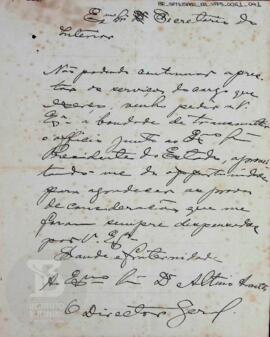 BR_SPIBUSP_IB_VPS_0081_041
Exmo Sr Dr Secretario do
Interior
Não podendo continuar a pres-
tar os serviços do cargo que
exerço, venho pedir a V.
Exª a bondade de transmittir
o officio junto ao Exmo Sr
Presidente do Estado, aprovei-
tando me da opportunidade
para agradecer as provas
de consideração que me
foram sempre dispensadas
por V. Exª.
Saude e fraternidade
Ao Exmo Sr Dr Altino Arantes
O Director Geral